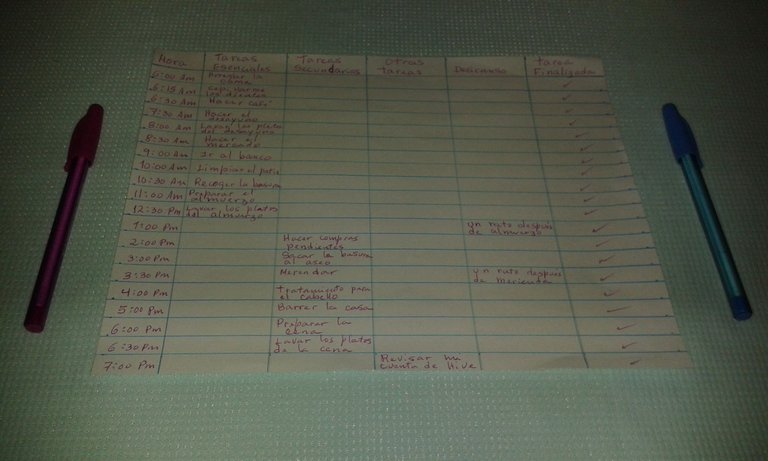 Hora Tareas Esenciales Tareas Secundarias Otras tareas Descanso tarea Finalizada
6:00 Am Arreglar la cama ✓
6:15 Am Cepillarme los dientes ✓
6:30 Am Hacer café ✓
7:30 Am Hacer el desayuno ✓
8:00 Am Lavar los platos del desayuno ✓
8:30 Am Hacer el mercado ✓
9:00 Am Ir al banco ✓
10:00 Am Limpiar el patio ✓
10:30 Am Recoger la basura ✓
11:00 Am Preparar el almuerzo ✓
12:30 Pm Lavar los platos del almuerzo ✓
1:00 Pm un rato después de almuerzo ✓
2:00 Pm Hacer compras pendientes ✓
3:00 Pm Sacar la basura al aseo ✓
3:30 Pm Merendar un rato después de merienda ✓
4:00 Pm tratamiento para el cabello ✓
5:00 Pm Barrer la casa ✓
6:00 Pm Preparar la cena ✓
6:30 Pm Lavar los platos de la cena ✓
7:00 Pm Revisar mi cuenta de Hive ✓